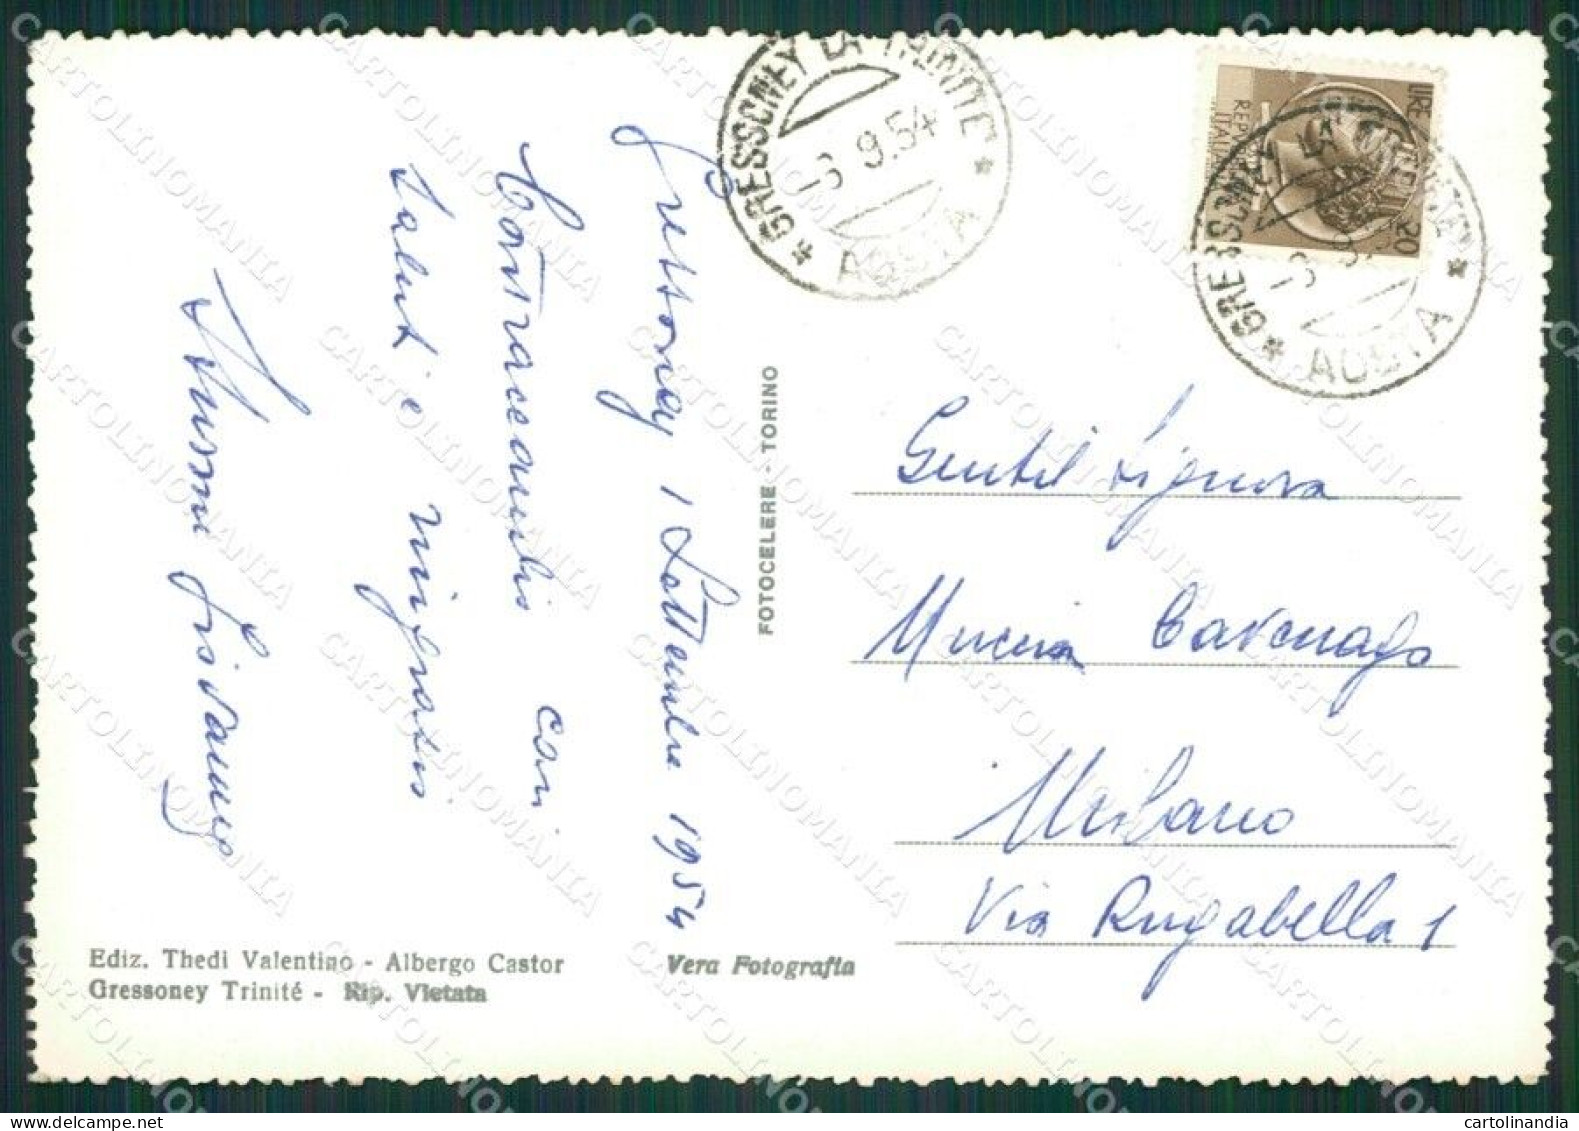 GRESSONEY LA TRINITE'
-6 9.54
AOSTA
LIRE 20
REPUBBLICA
ITALIANA
GRESSONEY LA TRINITE'
AOSTA
Gressoney 1 Settembre 1954
Contraccambio con
saluti e ringrazio
FOTOCELERE - TORINO
Gentil Signora
Cavenago
Milano
Via Rugabella 1
Ediz. Thedi Valentino - Albergo Castor
Gressoney Trinité - Rip. Vietata
Vera Fotografia
CARTOLINOMANIA
cartolinandia